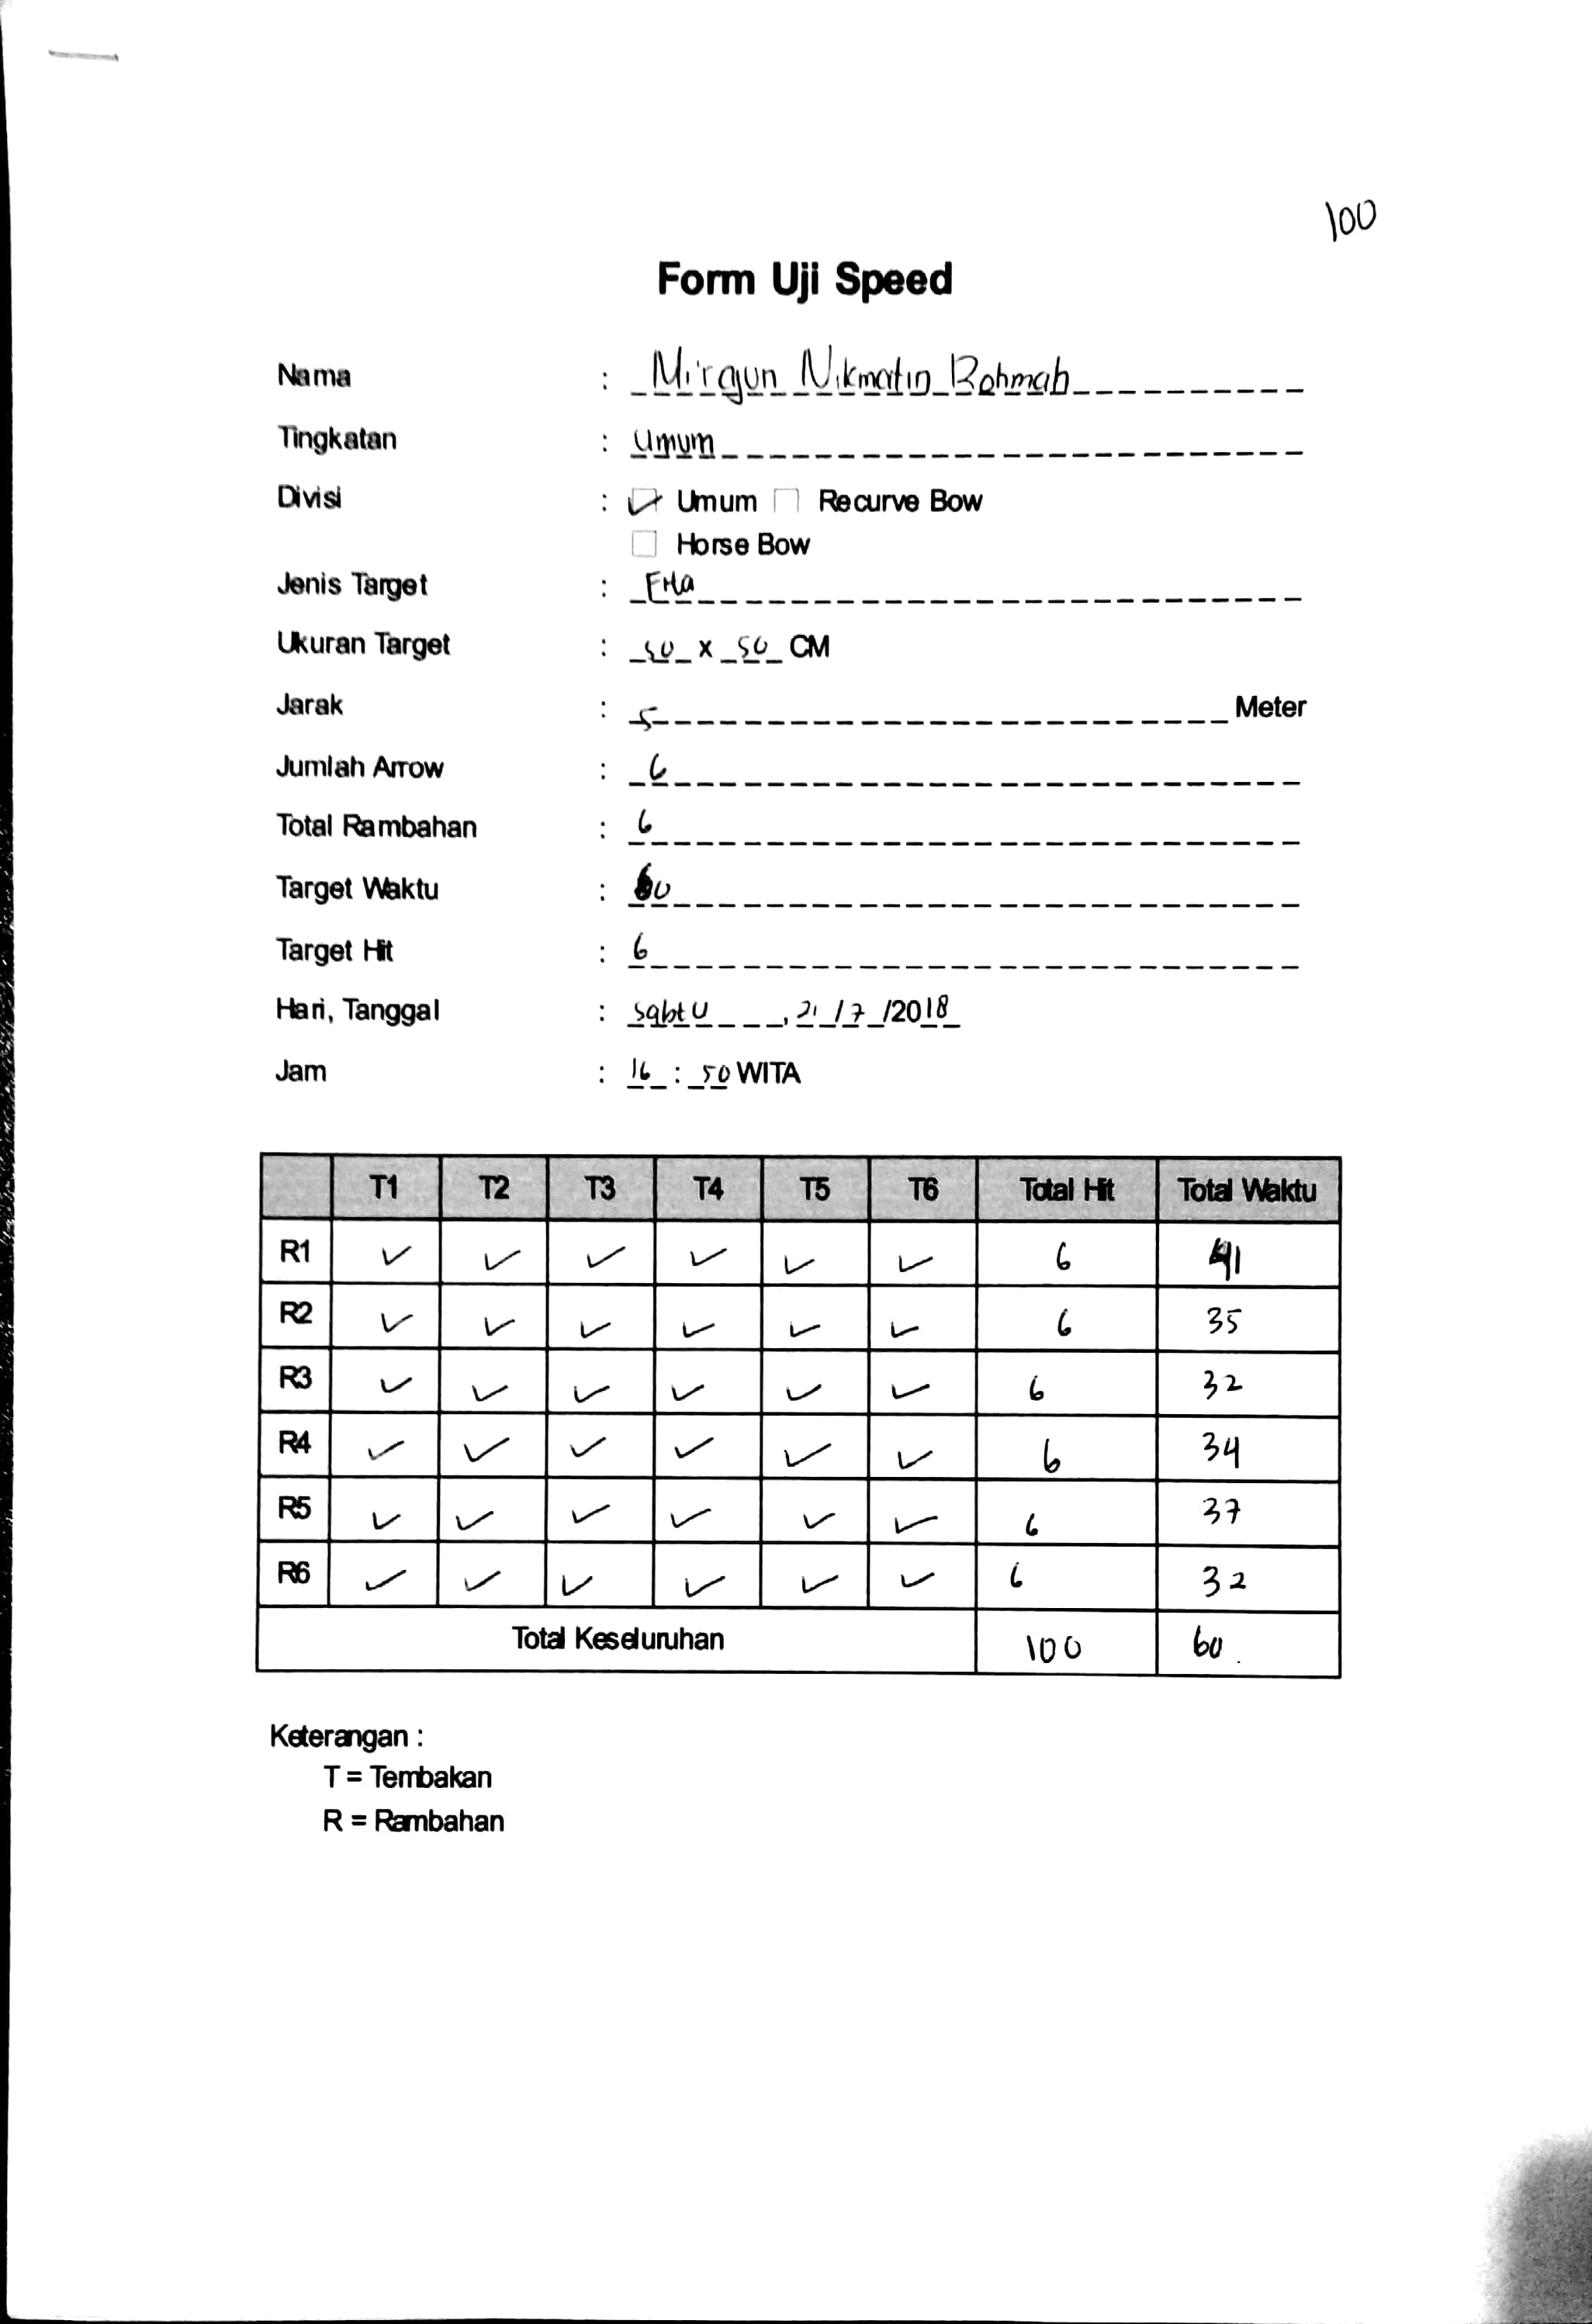 100
Form Uji Speed
Nama : Mi'rajun Nikmatin Rohmah
Tingkatan : Umum
Divisi : ✓ Umum ☐ Recurve Bow
☐ Horse Bow
Jenis Target :
Ukuran Target : 50 x 50 CM
Jarak : 5 Meter
Jumlah Arrow : 6
Total Rambahan : 6
Target Waktu : 60
Target Hit : 6
Hari, Tanggal : Sabtu , 21 / 7 /2018
Jam : 16 : 50 WITA
T1 T2 T3 T4 T5 T6 Total Hit Total Waktu
R1 ✓ ✓ ✓ ✓ ✓ ✓ 6 41
R2 ✓ ✓ ✓ ✓ ✓ ✓ 6 35
R3 ✓ ✓ ✓ ✓ ✓ ✓ 6 32
R4 ✓ ✓ ✓ ✓ ✓ ✓ 6 34
R5 ✓ ✓ ✓ ✓ ✓ ✓ 6 37
R6 ✓ ✓ ✓ ✓ ✓ ✓ 6 32
Total Keseluruhan 100 60
Keterangan :
T = Tembakan
R = Rambahan